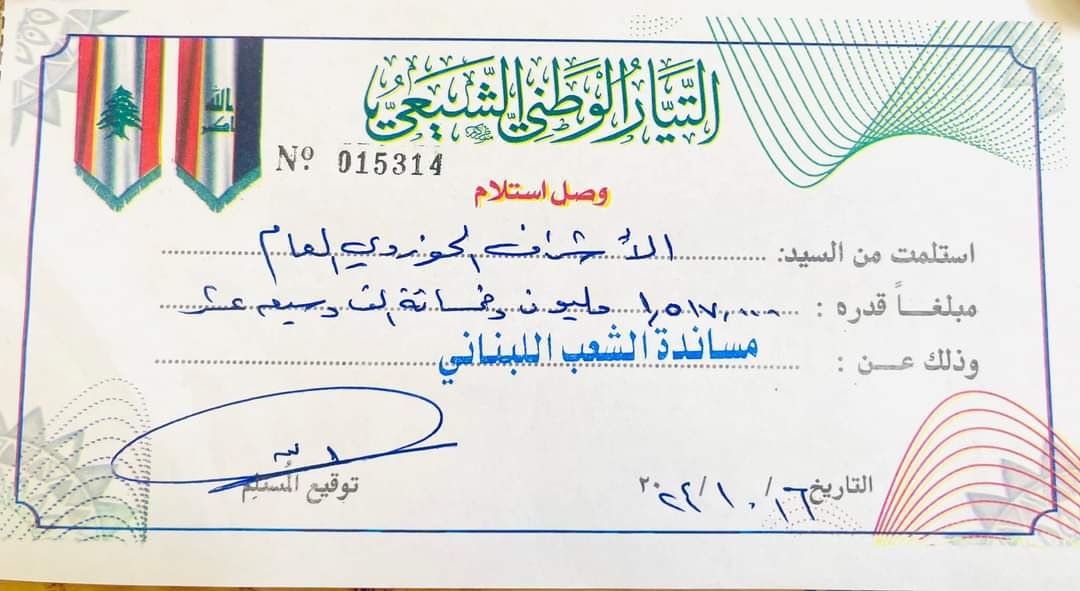 التَّيَّارُ الوَطَنيُّ الشَّيعيُّ
الله
اكبر
Nº 015314
وصل استلام
استلمت من السيد: الأشراف الحوزوي العام
مبلغاً قدره : ١,٥١٧,٠٠٠ مليون وخمسمائة الف وسبعة عشر
وذلك عن : مساندة الشعب اللبناني
التاريخ ١٦ / ١٠ / ٢٠٢٤
توقيع المُستلِم